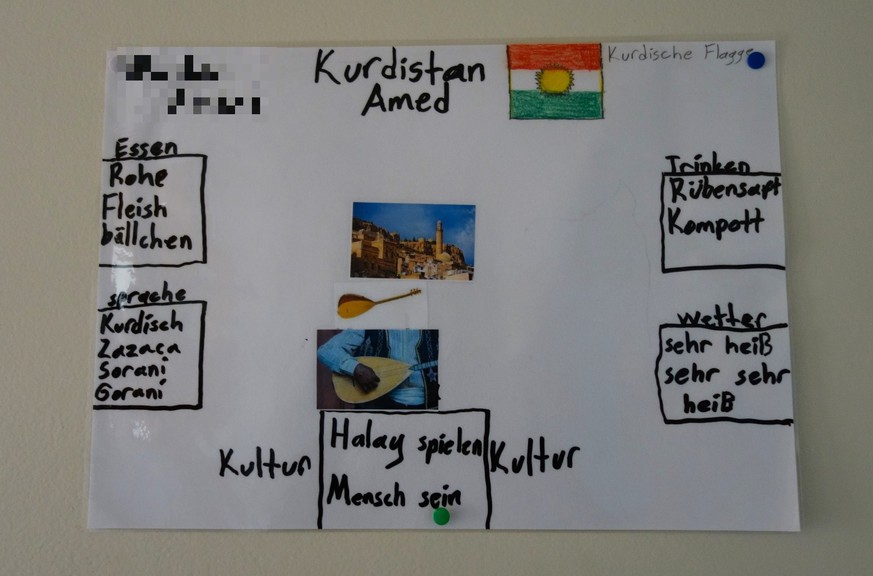 Kurdistan
Amed
Kurdische Flagge
Essen
Rohe
Fleish
bällchen
Trinken
Rübensapt
Kompott
sprache
Kurdisch
Zazaca
Sorani
Gorani
Wetter
sehr heiß
sehr sehr
heiß
Kultur
Halay spielen
Mensch sein
Kultur